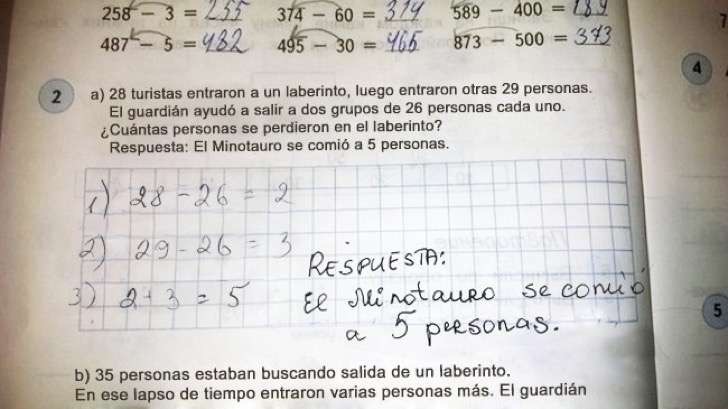 258 - 3 = 255   374 - 60 = 314   589 - 400 = 189
487 - 5 = 482   495 - 30 = 465   873 - 500 = 373
2 a) 28 turistas entraron a un laberinto, luego entraron otras 29 personas.
El guardián ayudó a salir a dos grupos de 26 personas cada uno.
¿Cuántas personas se perdieron en el laberinto?
Respuesta: El Minotauro se comió a 5 personas.
1) 28 - 26 = 2
2) 29 - 26 = 3
3) 2 + 3 = 5
RESPUESTA:
El Minotauro se comió
a 5 personas.
b) 35 personas estaban buscando salida de un laberinto.
En ese lapso de tiempo entraron varias personas más. El guardián
4
5